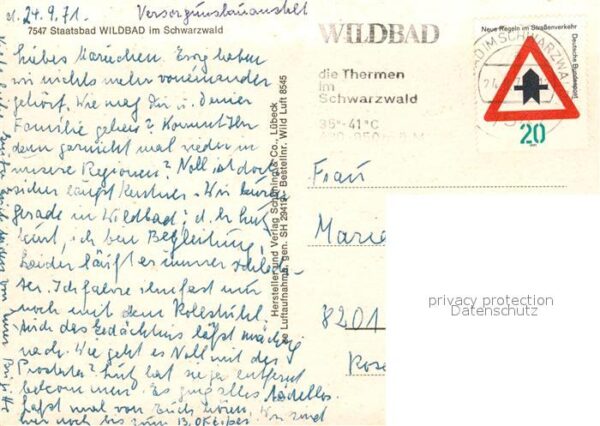 d. 24.9.71. Versorgungskuranstalt
7547 Staatsbad WILDBAD im Schwarzwald
Liebes Mariechen. Ewig haben
wir nichts mehr voneinander
gehört. Wie mag dir u. Deiner
Familie gehen? Kommt Ihr
denn garnicht mal wieder in
unsere Regionen? Noll ist doch
sicher längst Rentner. Wir kuren
gerade in Wildbad; d. h. Lutz
kurt, ich bin Begleitung!
Leider läuft er immer schlech-
ter. Ich fahre ihn fast nur
noch mit dem Rollstuhl.
Auch das Gedächtnis läßt mächtig
nach. Wie geht es Noll mit der
Prostata? Lutz hat sie ja entfernt
bekommen. Es ging alles tadellos.
Laßt mal von Euch hören. Wir sind
hier noch bis zum 13. Oktober.
von Eurer Brigitte
Hersteller und Verlag Schöning & Co., Lübeck
Luftaufnahme gen. SH 29419 - Bestellnr. Wild Luft 8545
WILDBAD
die Thermen
im
Schwarzwald
35°-41°C
Neue Regeln im Straßenverkehr
Deutsche Bundespost
20
Frau
Marie
8201
Rose
privacy protection
Datenschutz